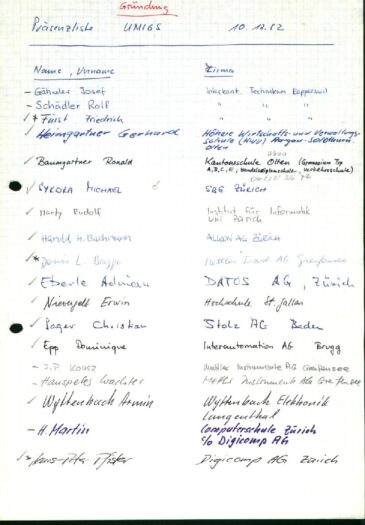 Gründung
Präsenzliste UMIGS 10.12.82
Name, Vorname Firma
- Gähwiler Josef Interkant. Technikum Rapperswil
- Schädler Rolf " " "
✓* Fürst Friedrich " " "
✓ Heimgartner Gerhard Höhere Wirtschafts- und Verwaltungs-
schule (HWV) Aargau-Solothurn,
Olten
✓ Baumgartner Ronald Kantonsschule Olten (Gymnasium Typ
A, B, C, E, Handelsdiplomschule, Verkehrsschule)
✓ SYKORA MICHAEL SBG ZÜRICH
✓ Marty Rudolf Institut für Informatik
Uni Zürich
✓ Harold H. Bachmann ALLON AG ZÜRICH
✓* L.
✓ Eberle Adrian DATOS AG, Zürich
✓ Nievergelt Erwin Hochschule St. Gallen
✓ Sager Christian Stolz AG Baden
✓ Epp Dominique Interautomation AG Brugg
- J.P. Mettler Instrumente AG Greifensee
- Hanspeter Wachter Mettler Instrumente AG Greifensee
✓ Wyttenbach Armin Wyttenbach Elektronik
Langenthal
- H. Martin Computerschule Zürich
c/o Digicomp AG
✓* Hans-Peter Pfister Digicomp AG Zürich